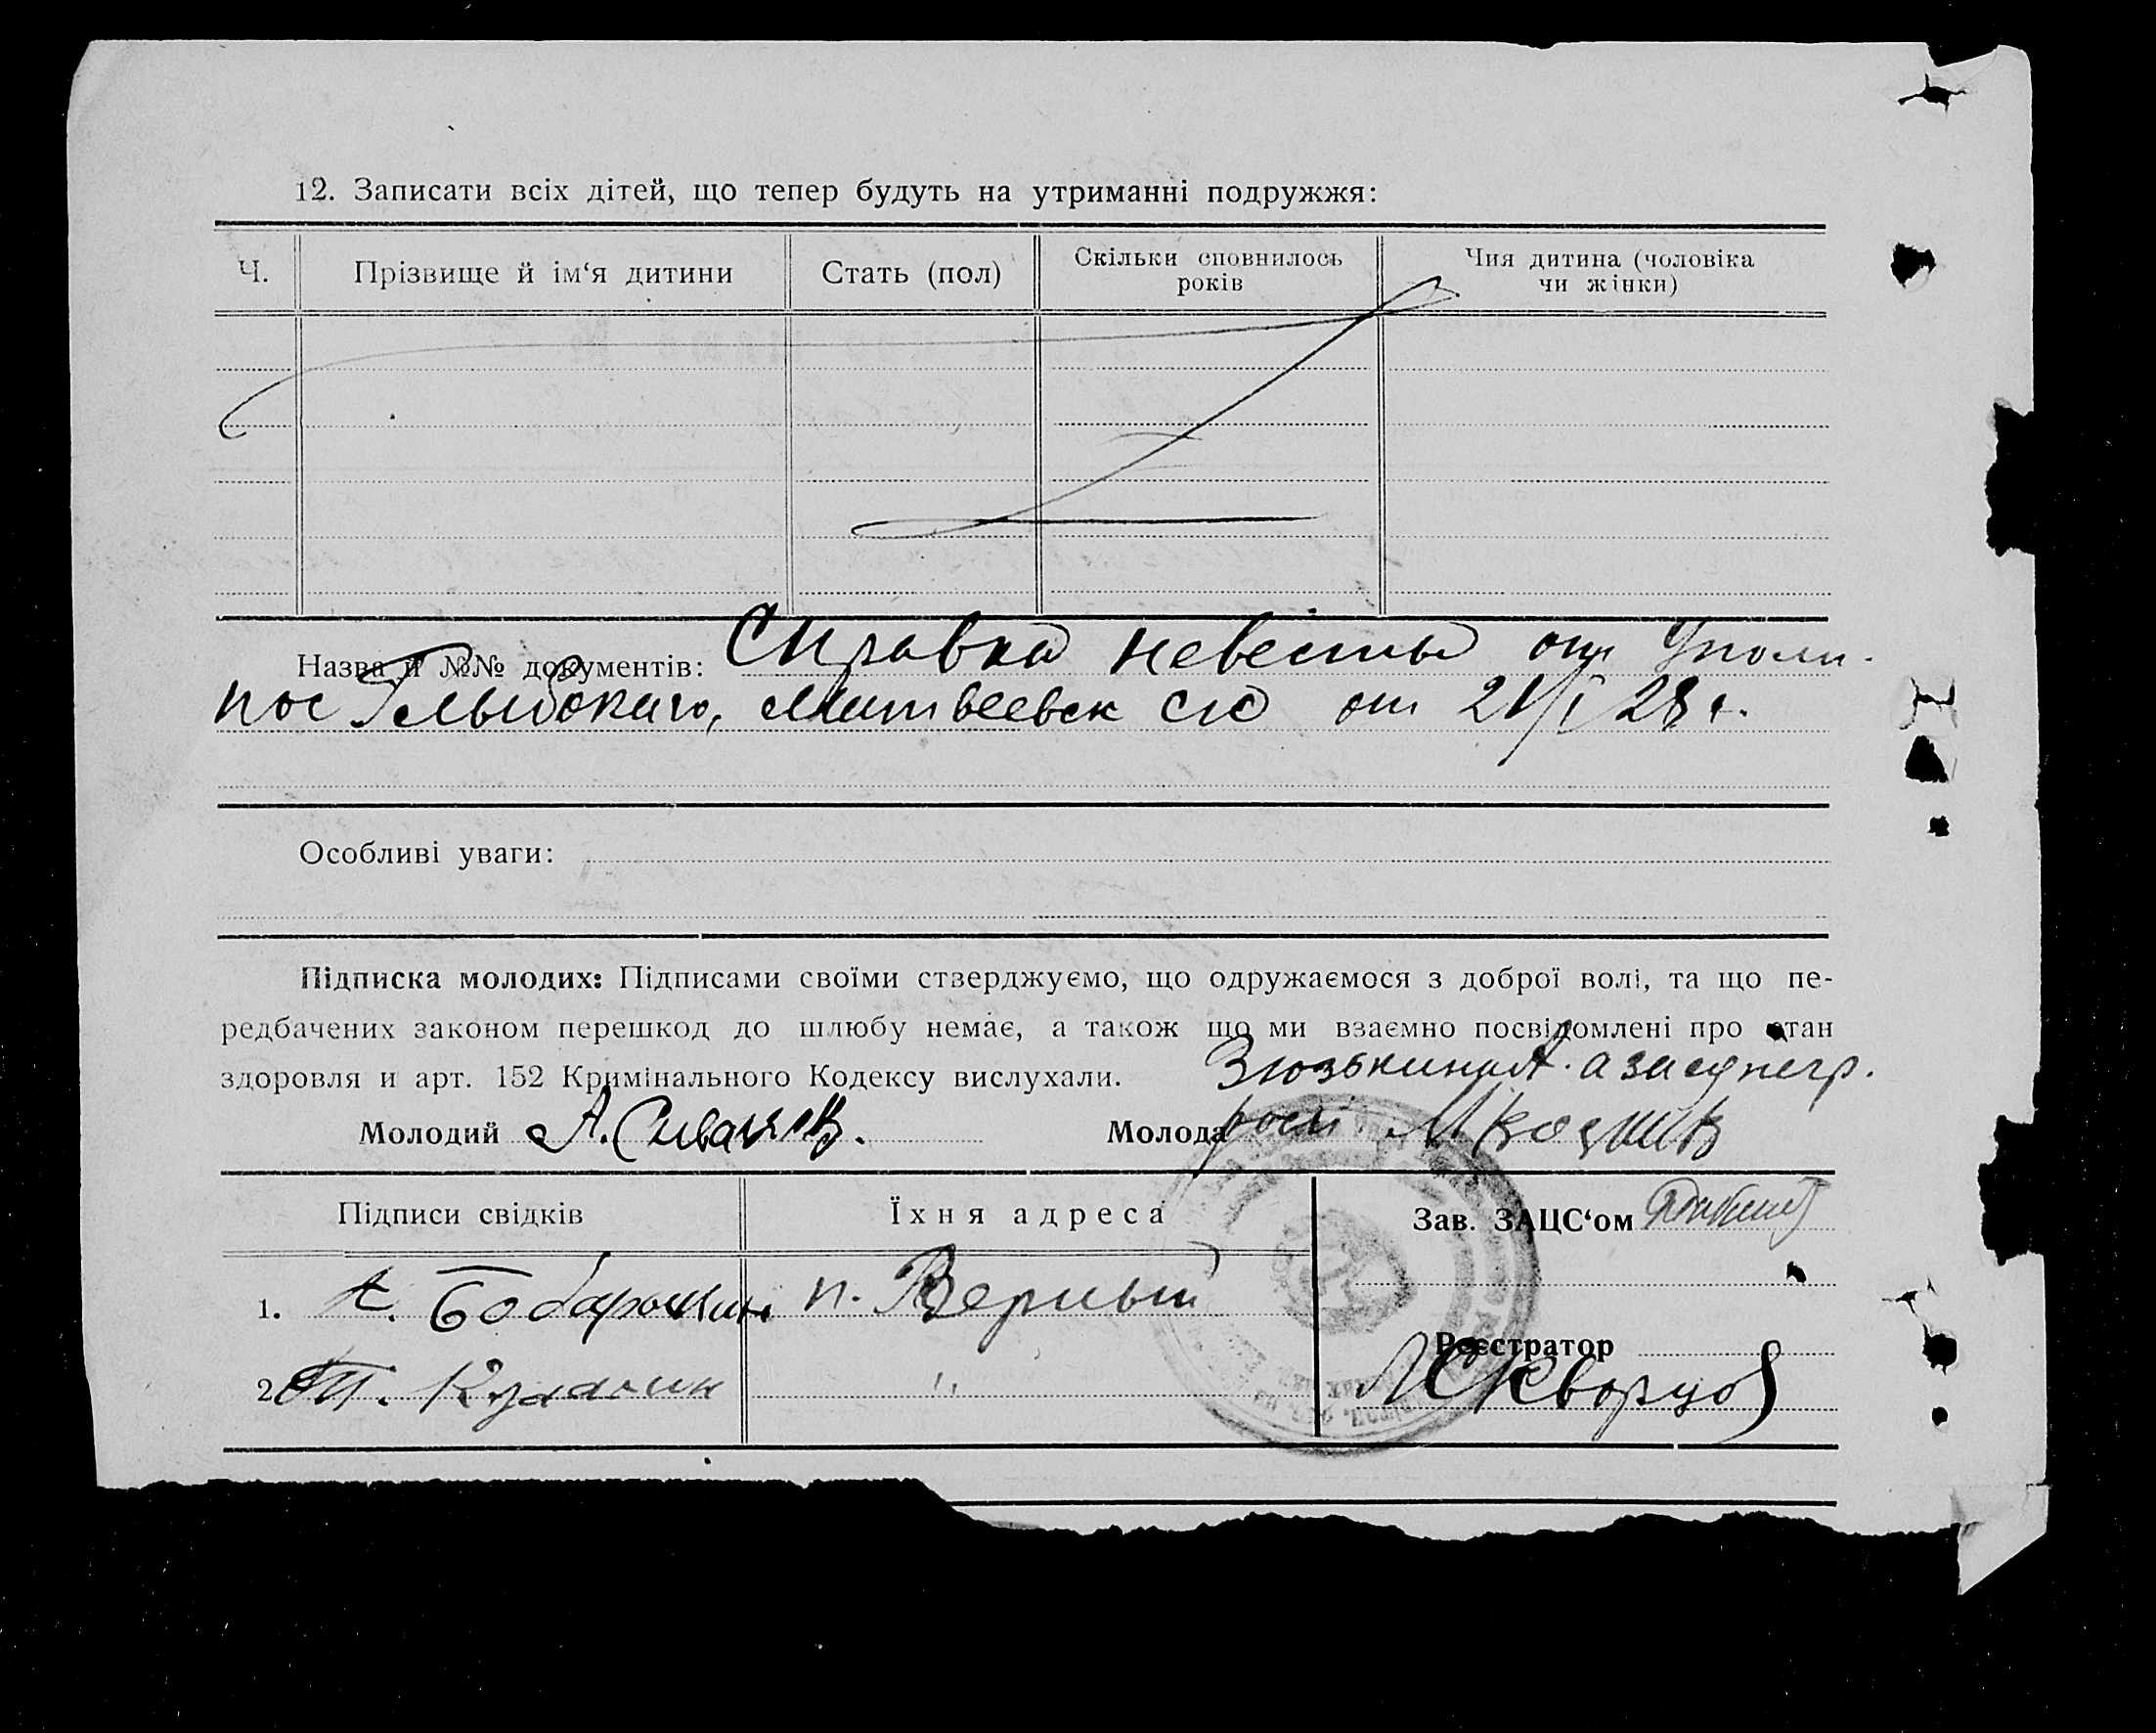 12. Записати всіх дітей, що тепер будуть на утриманні подружжя:
Ч. Прізвище й ім‘я дитини Стать (пол) Скільки сповнилось років Чия дитина (чоловіка чи жінки)
Назва й №№ документів: Справка невесты от Уполн.
пос Глыбокаго, Матвеевск с/с от 21/I 28 г.
Особливі уваги:
Підписка молодих: Підписами своїми стверджуємо, що одружаємося з доброї волі, та що пе-
редбачених законом перешкод до шлюбу немає, а також що ми взаємно посвідомлені про стан
здоровля и арт. 152 Кримінального Кодексу вислухали. Зюзькина А. а за ея негр.
Молодий А. Молода
Підписи свідків Їхня адреса Зав. ЗАЦС‘ом
1. п. Верный
Реєстратор
2. Т. " Скворцов